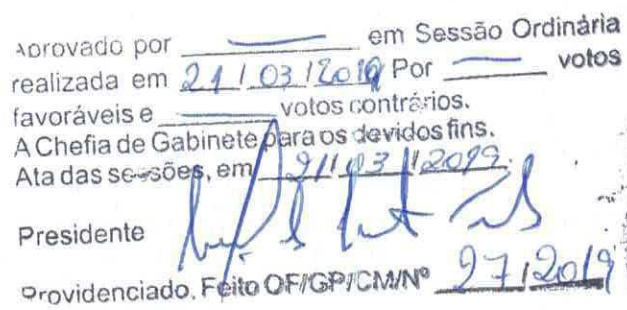 Aprovado por ________ em Sessão Ordinária
realizada em 21/03/2019 Por ________ votos
favoráveis e ________ votos contrários.
A Chefia de Gabinete para os devidos fins.
Ata das sessões, em 21/03/2019.
Presidente
Providenciado, Feito OF/GP/CM/Nº 27/2019